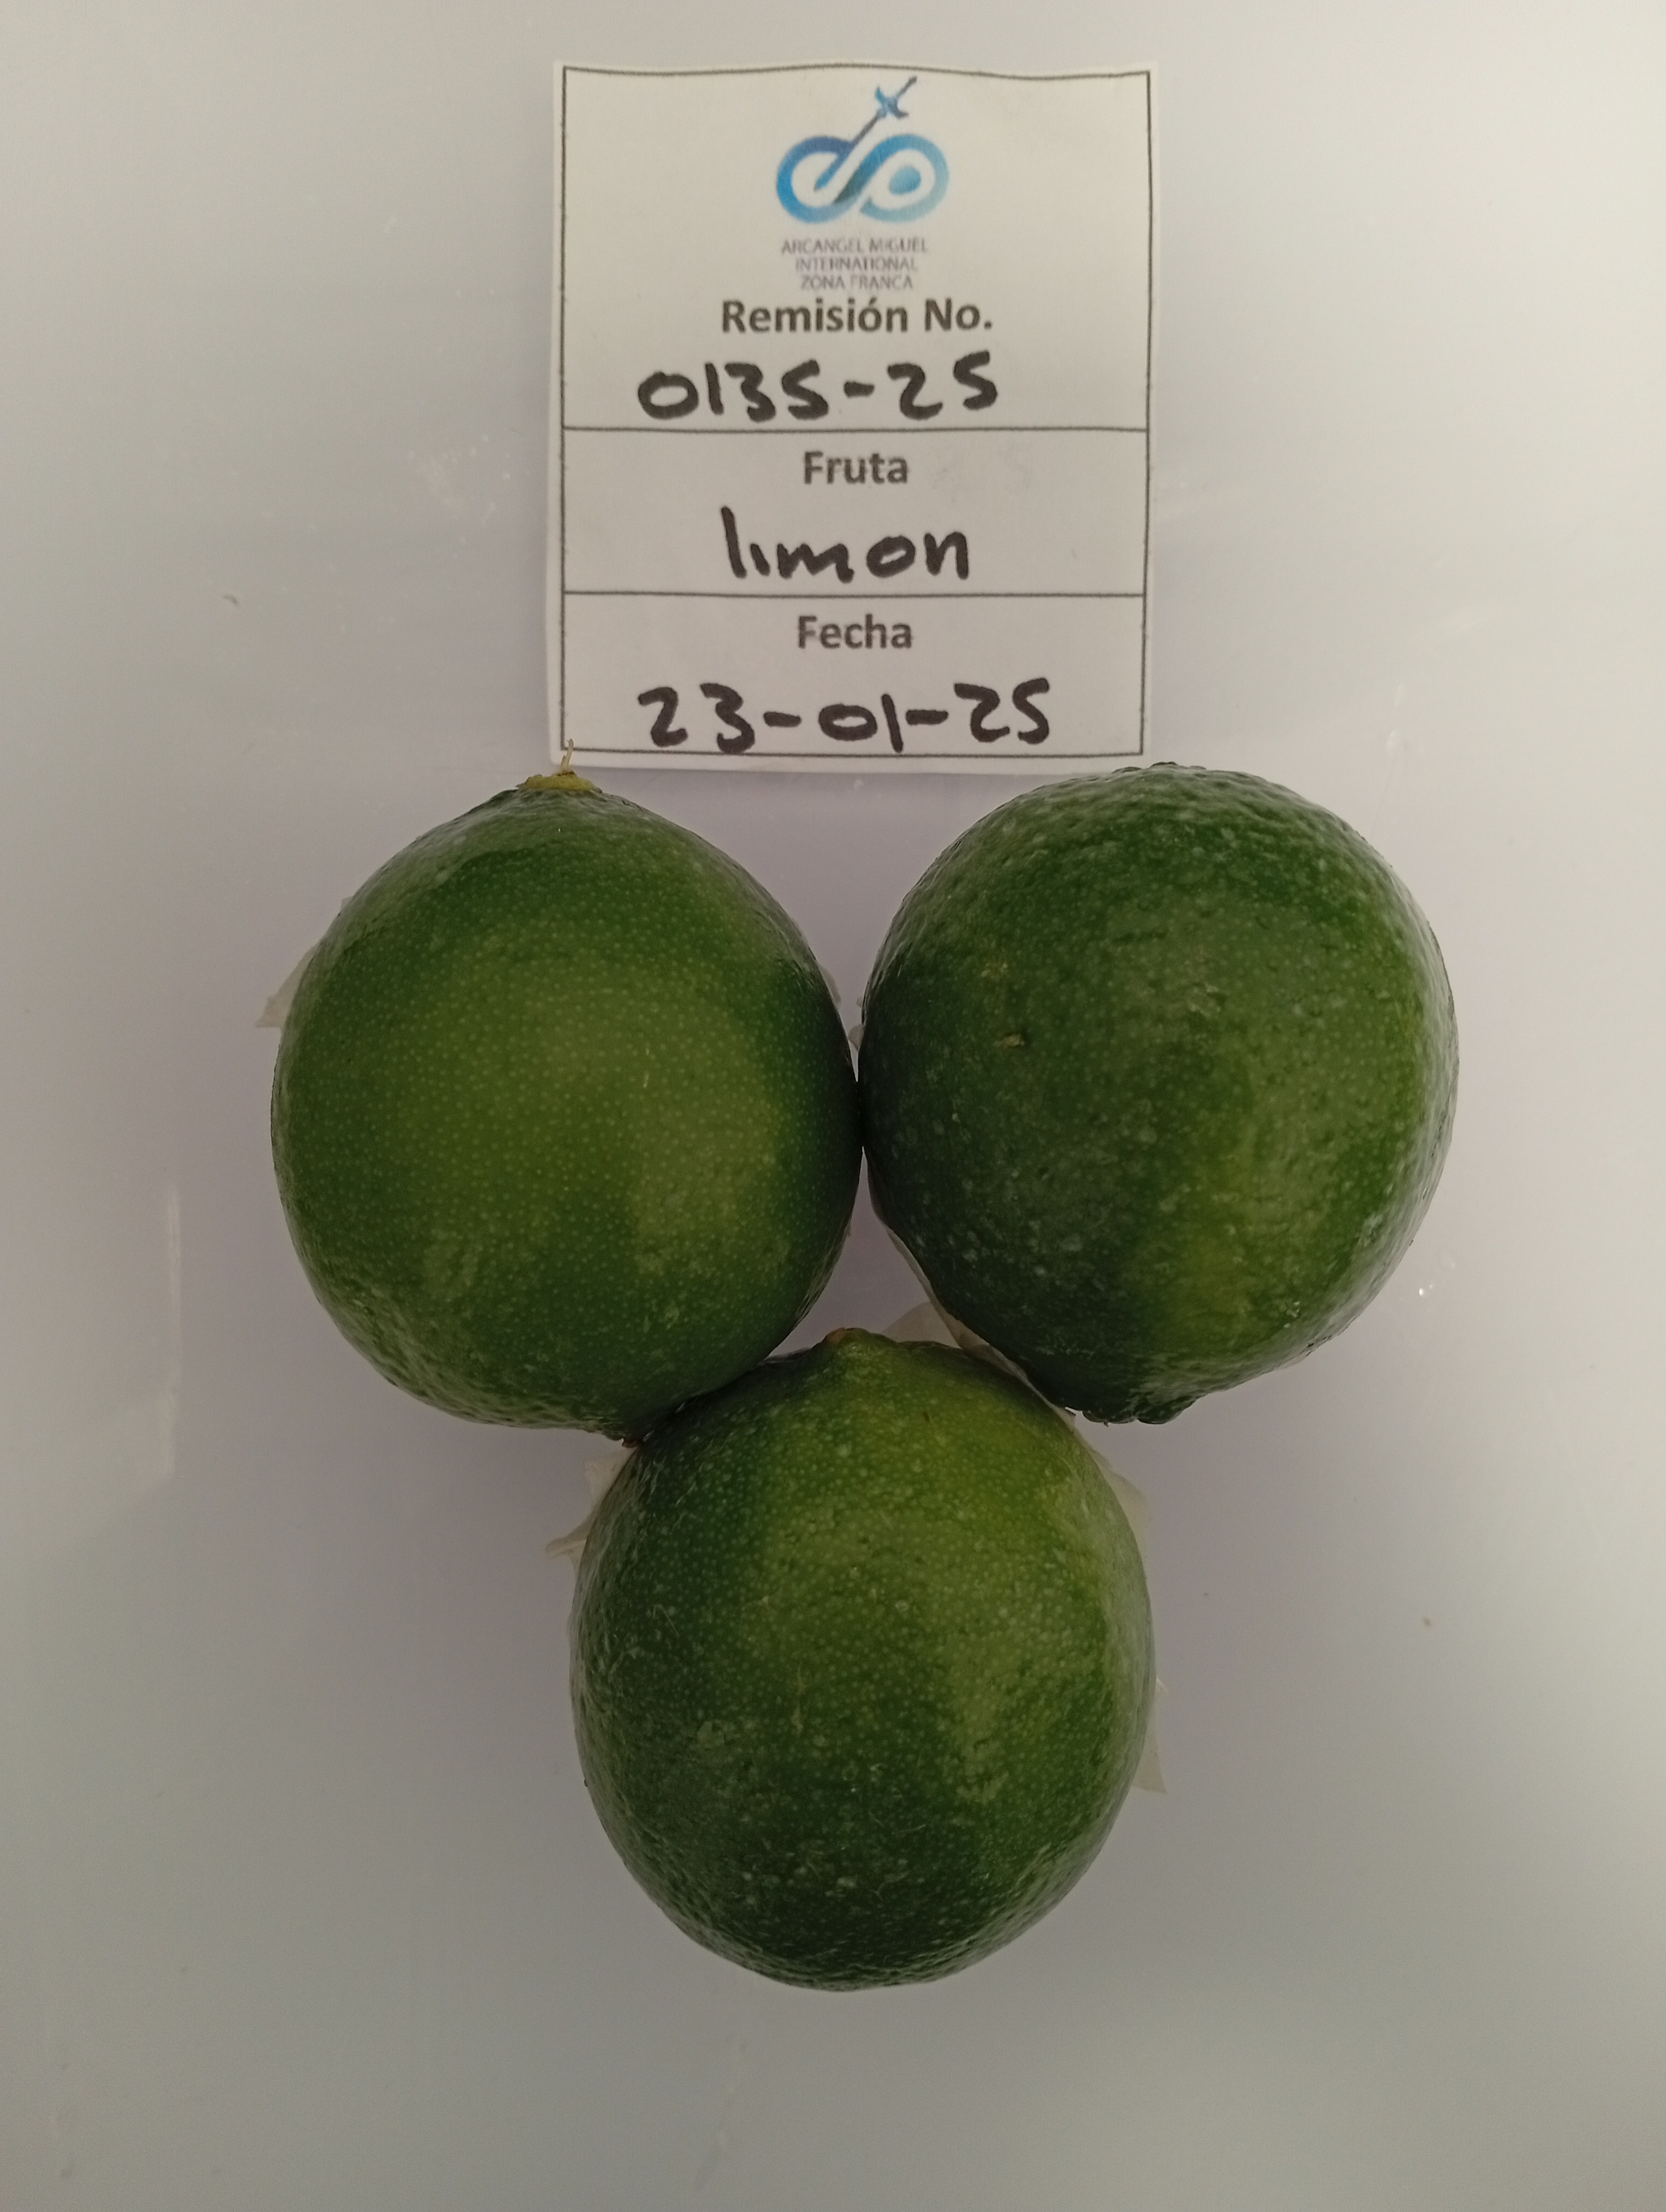 ARCANGEL MIGUEL
INTERNATIONAL
ZONA FRANCA
Remisión No.
0135-25
Fruta
limon
Fecha
23-01-25